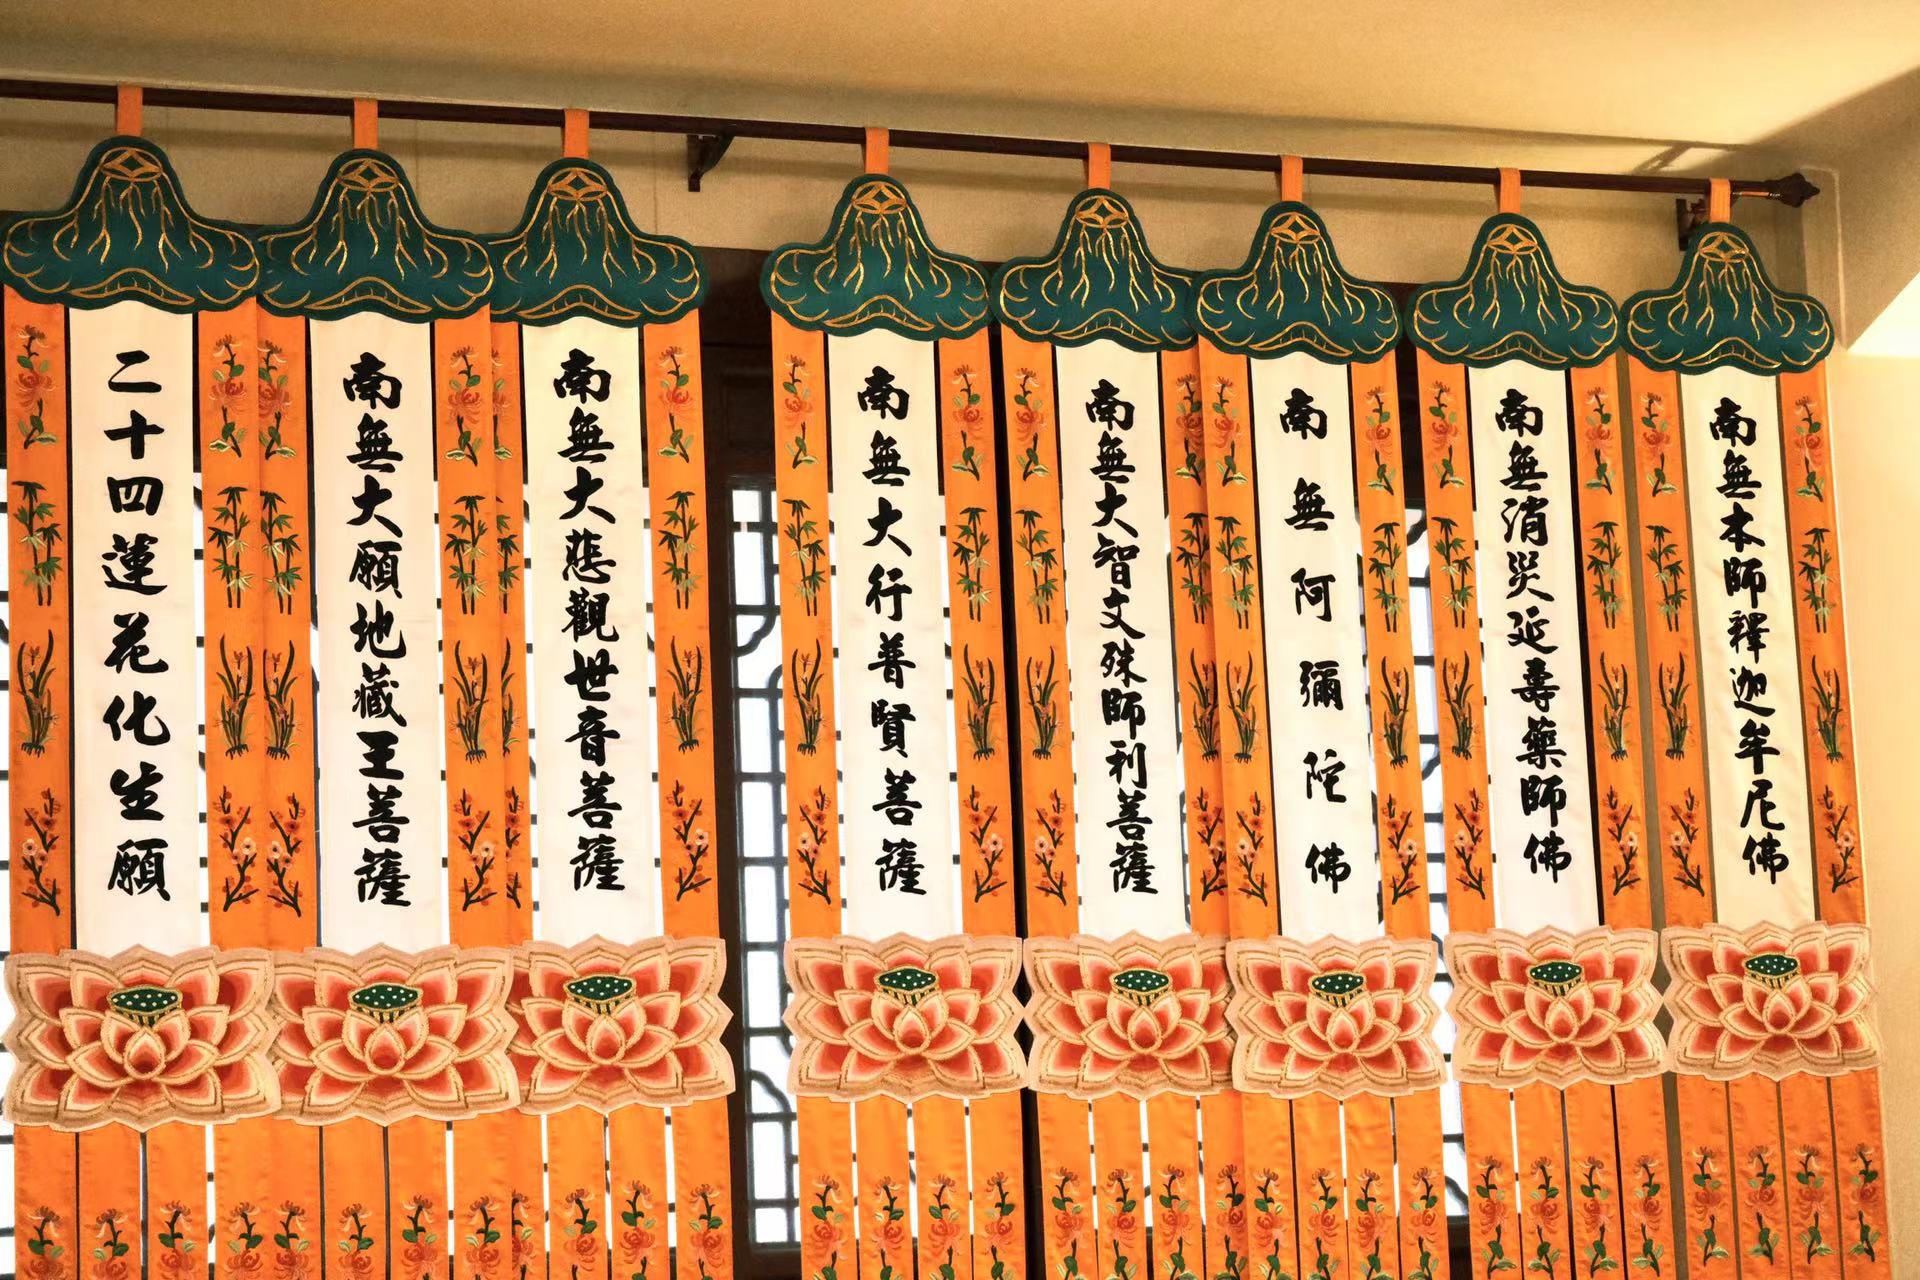 南無本師釋迦牟尼佛
南無消災延壽藥師佛
南無阿彌陀佛
南無大智文殊師利菩薩
南無大行普賢菩薩
南無大悲觀世音菩薩
南無大願地藏王菩薩
二十四蓮花化生願